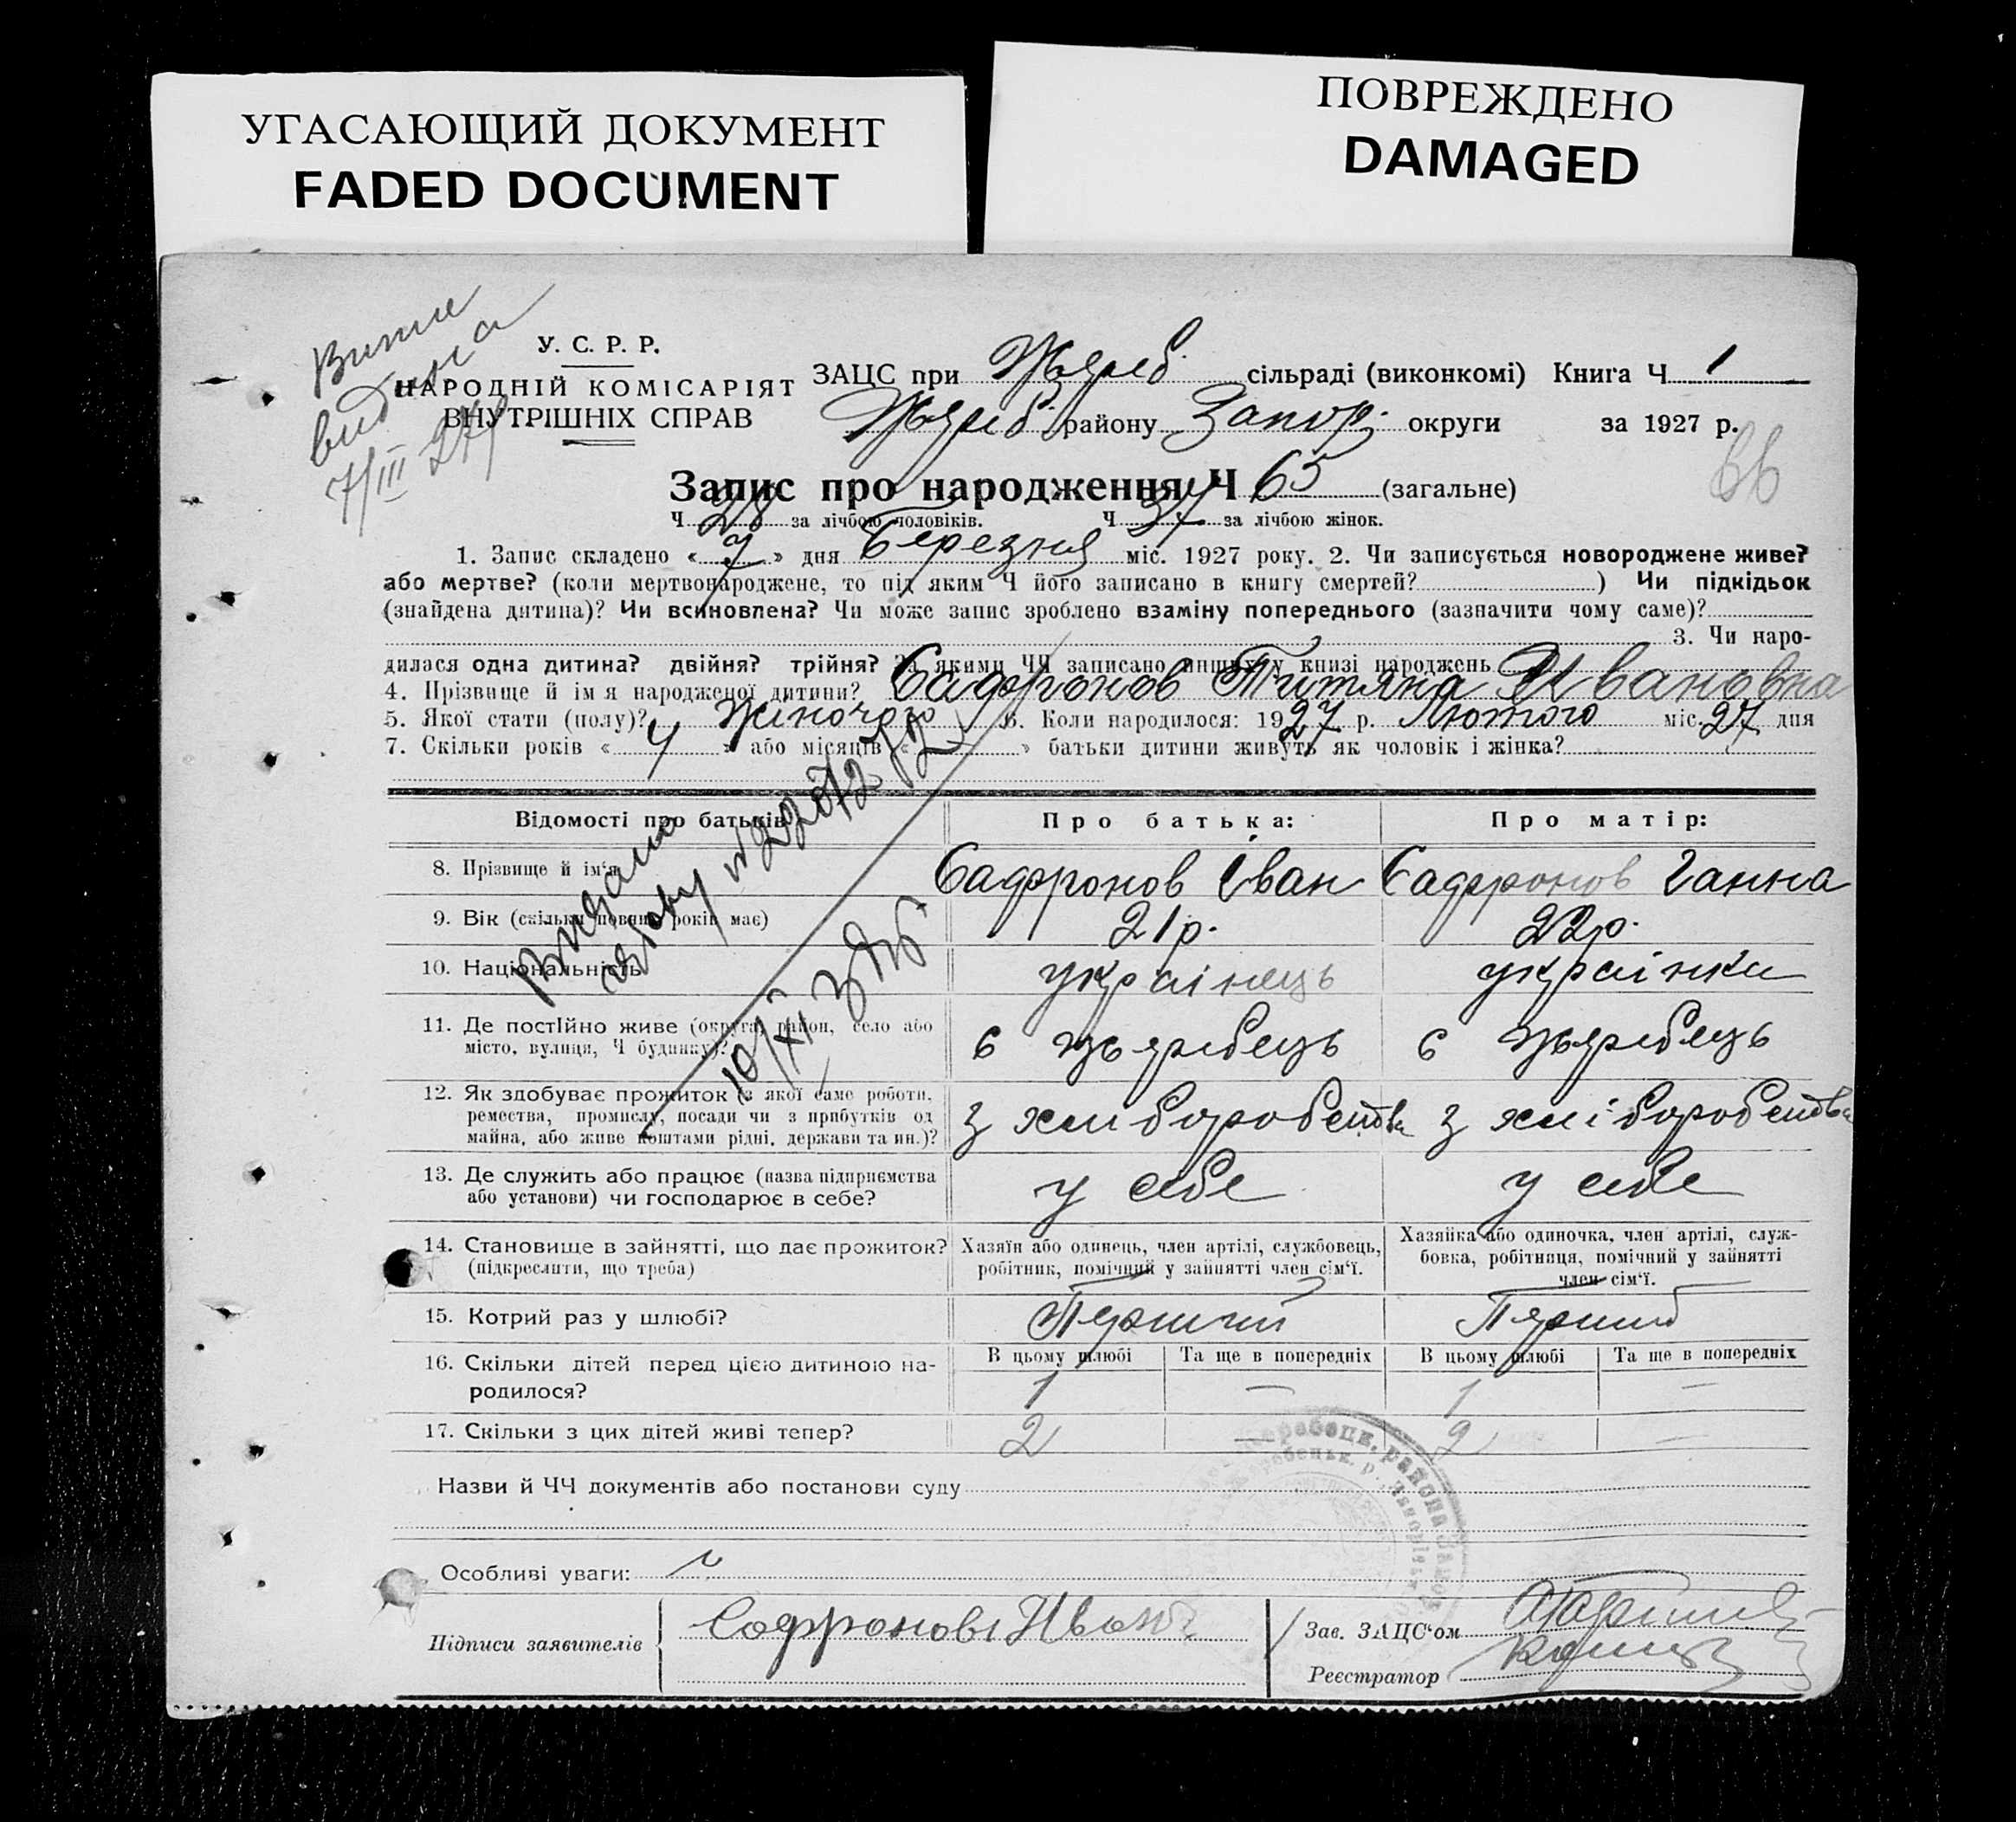 УГАСАЮЩИЙ ДОКУМЕНТ
FADED DOCUMENT
ПОВРЕЖДЕНО
DAMAGED
видана
7/III 27р
У. С. Р. Р.
НАРОДНІЙ КОМІСАРІЯТ
ВНУТРІШНІХ СПРАВ
ЗАЦС при Жереб. сільраді (виконкомі) Книга Ч. 1
Жереб. району Запор. округи за 1927 р.
66
Запис про народження Ч 65 (загальне)
Ч 28 за лічбою чоловіків. Ч 37 за лічбою жінок.
1. Запис складено « 7 » дня Березня міс. 1927 року. 2. Чи записується новороджене живе?
або мертве? (коли мертвонароджене, то під яким Ч його записано в книгу смертей? ) Чи підкідьок
(знайдена дитина)? Чи всиновлена? Чи може запис зроблено взаміну попереднього (зазначити чому саме)?
3. Чи наро-
дилася одна дитина? двійня? трійня? За якими ЧЧ записано инших у книзі народжень
4. Прізвище й ім я народженої дитини? Сафронов Титяна Ивановна
5. Якої стати (полу)? жіночого 6. Коли народилося: 1927 р. Лютого міс. 27 дня
7. Скільки років « 4 » або місяців « » батьки дитини живуть як чоловік і жінка?
Відомості про батьків
Про батька:
Про матір:
8. Прізвище й ім'я
Сафронов Іван
Сафронов Ганна
9. Вік (скільки повних років має)
21р.
22р.
10. Національність
українець
українка
11. Де постійно живе (округа, район, село або
місто, вулиця, Ч будинку)?
с Жеребець
с Жеребець
12. Як здобуває прожиток (з якої саме роботи,
ремества, промислу, посади чи з прибутків од
майна, або живе коштами рідні, держави та ин.)?
з хліборобства
з хліборобства
13. Де служить або працює (назва підприємства
або установи) чи господарює в себе?
у себе
у себе
14. Становище в зайнятті, що дає прожиток?
(підкреслити, що треба)
Хазяїн або одинець, член артілі, службовець,
робітник, помічний у зайнятті член сім'ї.
Хазяйка або одиночка, член артілі, служ-
бовка, робітниця, помічний у зайнятті
член сім'ї.
15. Котрий раз у шлюбі?
Перший
Перший
16. Скільки дітей перед цією дитиною на-
родилося?
В цьому шлюбі
Та ще в попередніх
В цьому шлюбі
Та ще в попередніх
1 — 1 —
17. Скільки з цих дітей живі тепер?
2 — 2 —
Назви й ЧЧ документів або постанови суду
Особливі уваги:
Підписи заявителів
Софронов Иван
Зав. ЗАЦС'ом
Реєстратор